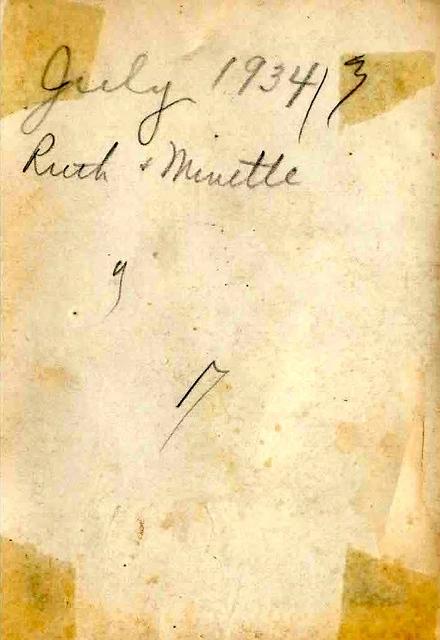 July 1934/3
Ruth & Minette
9
17